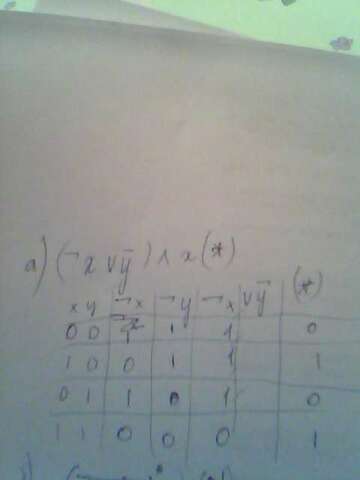 a) (¬x ∨ ȳ) ∧ x (*)
x y ¬x ¬y ¬x ∨ ȳ (*)
0 0 1 1 1 0
1 0 0 1 1 1
0 1 1 0 1 0
1 1 0 0 0 1